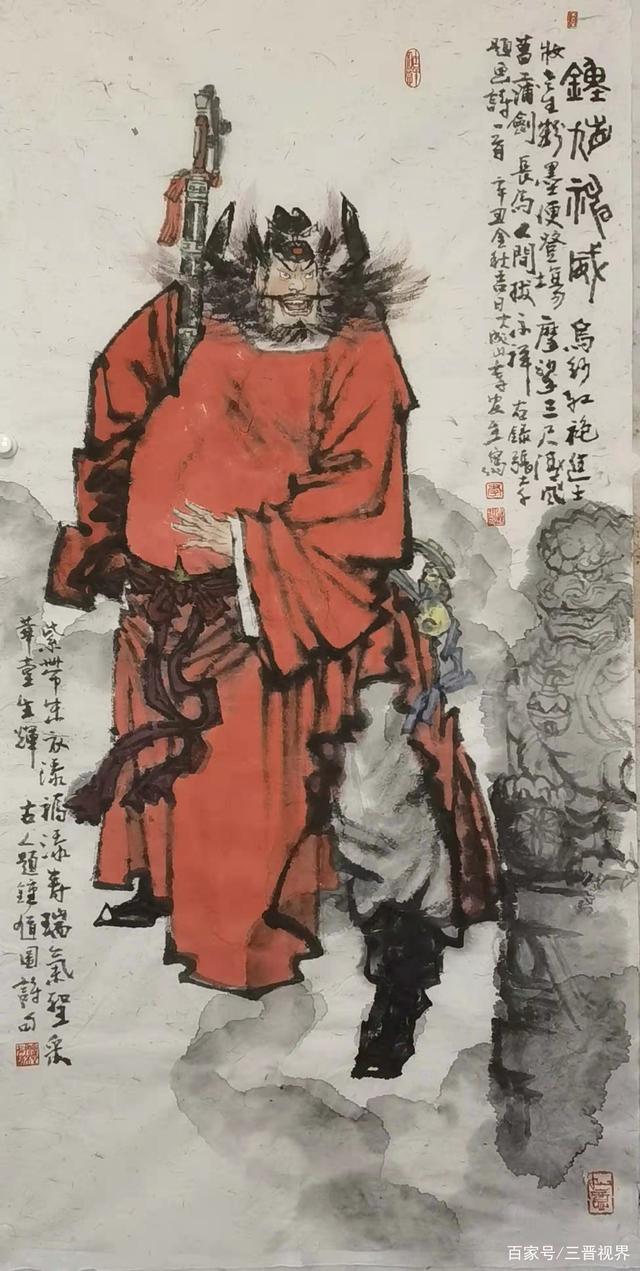 鍾馗神威 烏紗紅袍進士
妝 生粉墨便登場 摩挲三尺 風
菖蒲劍 長為人間拔不祥 右錄張大千
題畫詩一首 辛丑金秋吉日大成山李 寫
紫帶朱衣添福添壽瑞氣聖采
華堂生輝 古人題鍾馗圖詩句
百家号/三晋视界